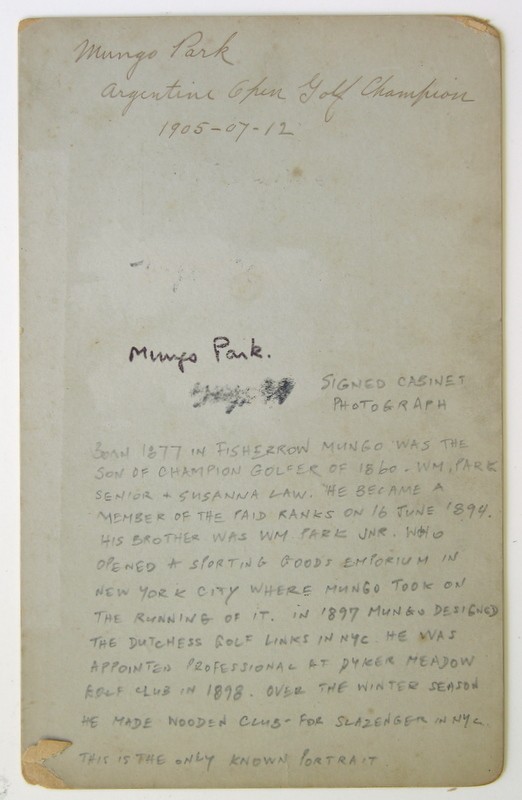 Mungo Park
Argentine Open Golf Champion
1905-07-12
Mungo Park.
SIGNED CABINET
PHOTOGRAPH
BORN 1877 IN FISHERROW MUNGO WAS THE
SON OF CHAMPION GOLFER OF 1860 - WM. PARK
SENIOR + SUSANNA LAW. HE BECAME A
MEMBER OF THE PAID RANKS ON 16 JUNE 1894.
HIS BROTHER WAS WM PARK JNR. WHO
OPENED A SPORTING GOODS EMPORIUM IN
NEW YORK CITY WHERE MUNGO TOOK ON
THE RUNNING OF IT. IN 1897 MUNGO DESIGNED
THE DUTCHESS GOLF LINKS IN NYC. HE WAS
APPOINTED PROFESSIONAL AT DYKER MEADOW
GOLF CLUB IN 1898. OVER THE WINTER SEASON
HE MADE WOODEN CLUB- FOR SLAZENGER IN NYC
THIS IS THE ONLY KNOWN PORTRAIT.